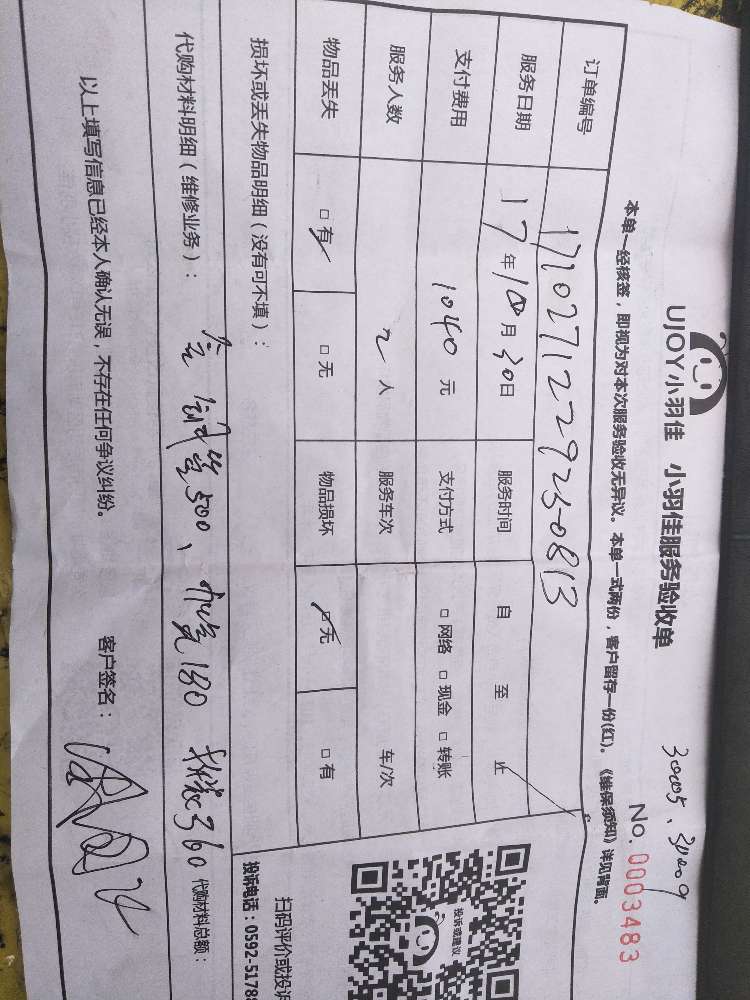 30005、30009
UJOY小羽佳 小羽佳服务验收单
No. 0003483
本单一经核签，即视为对本次服务验收无异议。本单一式两份，客户留存一份(红)。《维保须知》详见背面。
订单编号 1710271229250813
服务日期 17年10月30日 服务时间 自 至 止
支付费用 1040元 支付方式 □网络 □现金 □转账
服务人数 2人 服务车次 车/次
物品丢失 □有 □无 物品损坏 □无 □有
损坏或丢失物品明细（没有可不填）：
代购材料明细（维修业务）： 500、 180 360 代购材料总额：
以上填写信息已经本人确认无误，不存在任何争议纠纷。 客户签名：
投诉或建议
UJOY
扫码评价或投诉
投诉电话：0592-5178